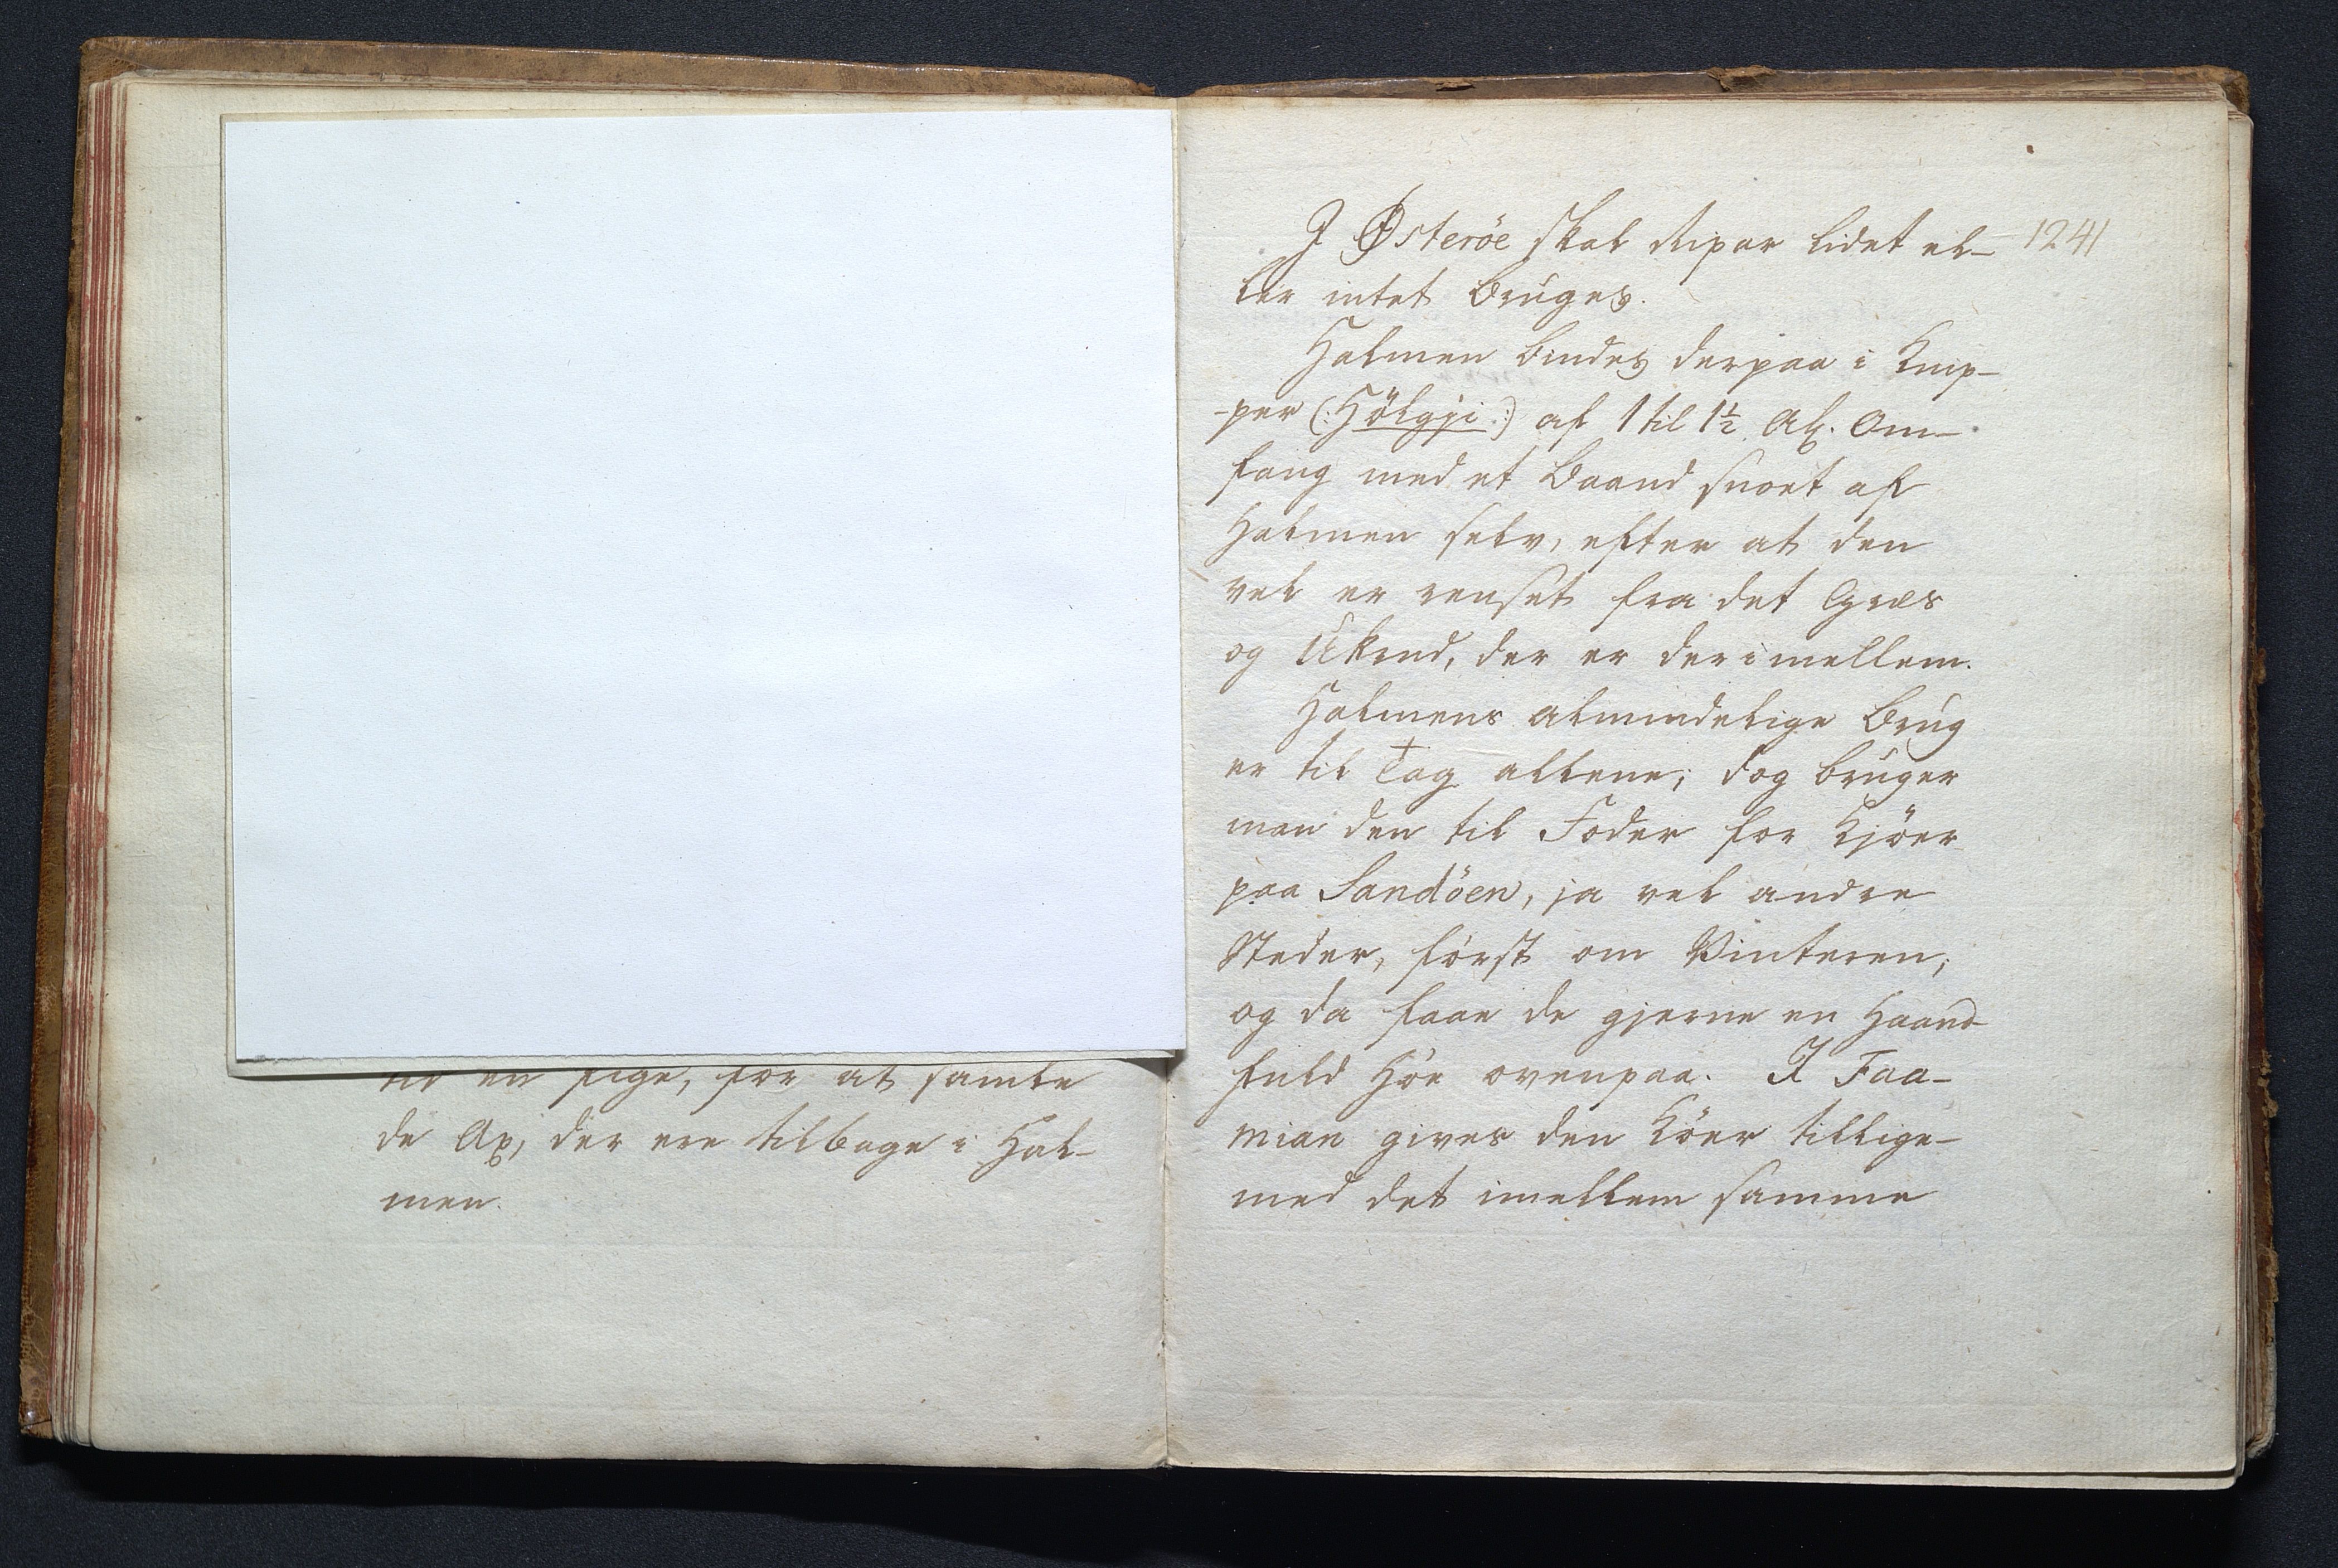 til en Pige, for at samle
de Ax, der ere tilbage i Hal-
men.
1241
I Østeröe skal Ripar lidet el-
ler intet bruges.
Halmen bindes derpaa i Knip-
-per (: Hölgji :) af 1 til 1½ Al. Om-
fang med et Baand snoet af
Halmen selv, efter at den
vel er renset fra det Græs
og Ukrud, der er derimellem.
Halmens almindelige Brug
er til Tag allene; dog bruger
man den til Foder for Kjöer
paa Sandöen, ja vel andre
Steder, först om Vinteren;
og da faae de gjerne en Haand-
fuld Höe ovenpaa. I Faa-
mian gives den Köer tillige-
med det imellem samme